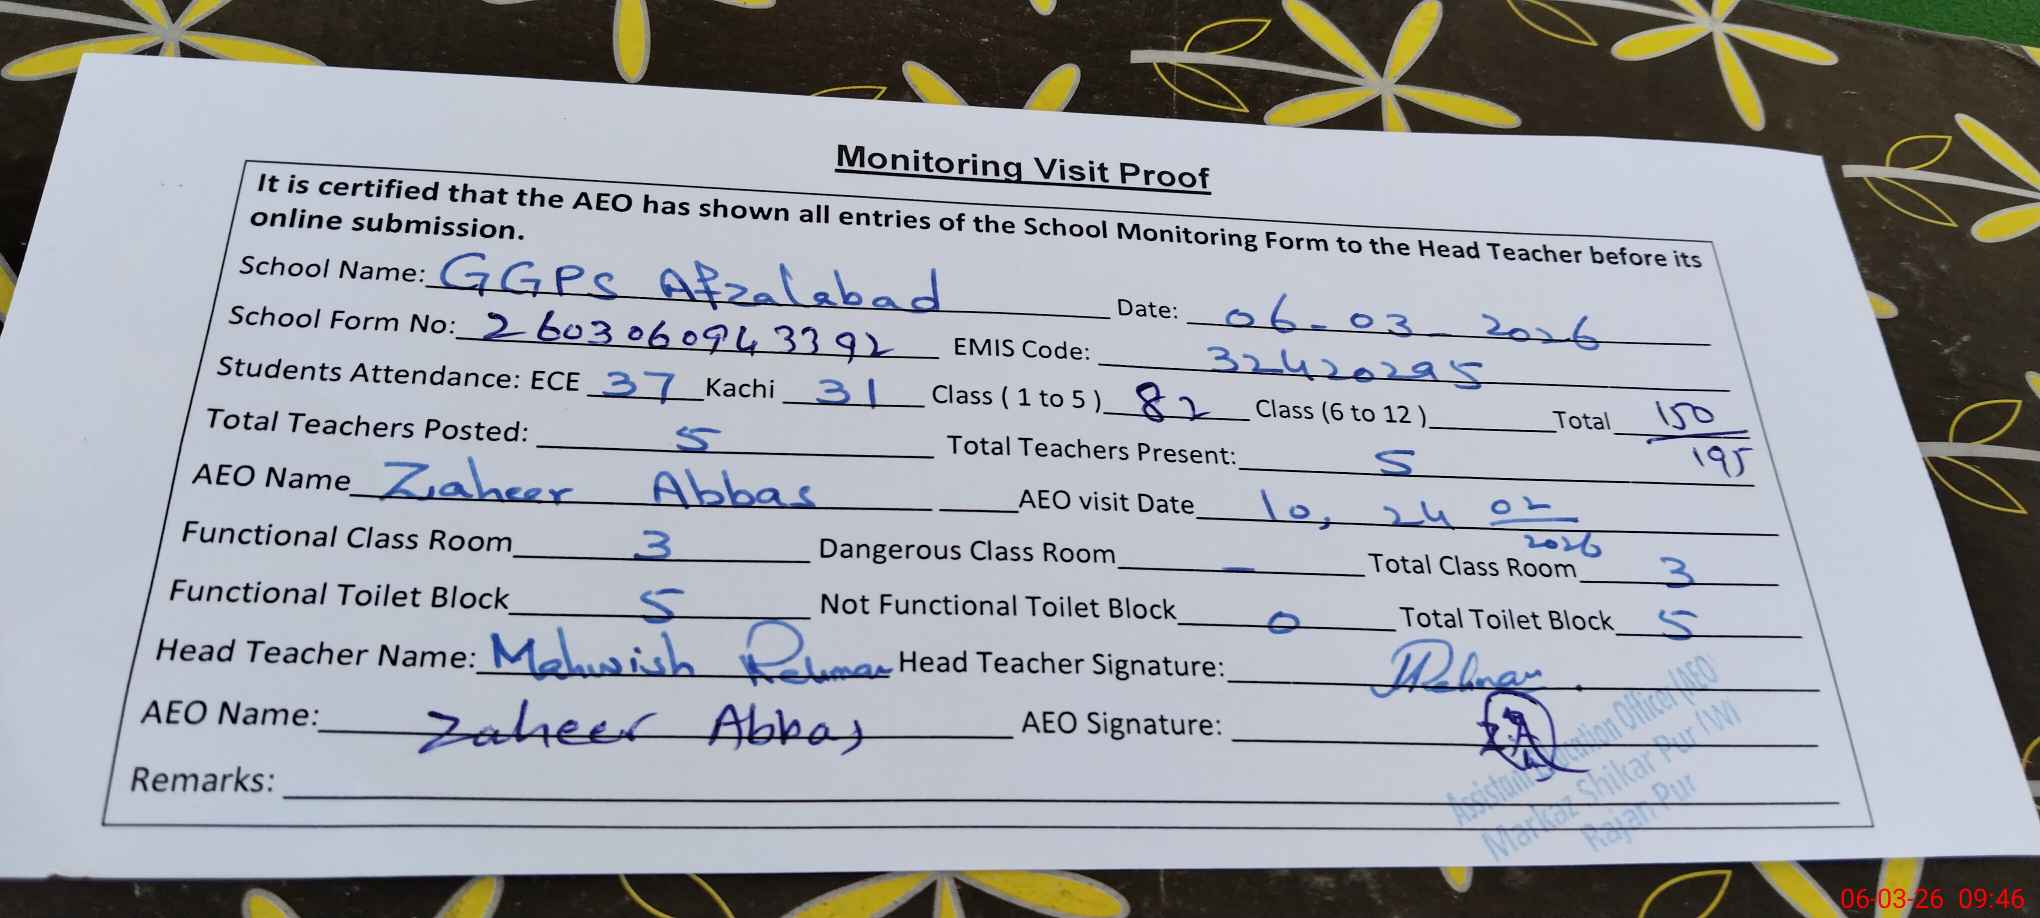 Monitoring Visit Proof
It is certified that the AEO has shown all entries of the School Monitoring Form to the Head Teacher before its
online submission.
School Name: GGPS Afzalabad Date: 06-03-2026
School Form No: 2603060943392 EMIS Code: 32420295
Students Attendance: ECE 37 Kachi 31 Class ( 1 to 5 ) 82 Class (6 to 12 ) Total 150/195
Total Teachers Posted: 5 Total Teachers Present: 5
AEO Name Zaheer Abbas AEO visit Date 10, 24 02/2026
Functional Class Room 3 Dangerous Class Room - Total Class Room 3
Functional Toilet Block 5 Not Functional Toilet Block 0 Total Toilet Block 5
Head Teacher Name: Mehwish Rehman Head Teacher Signature: Rehman
AEO Name: Zaheer Abbas AEO Signature: ZA
Remarks:
Assistant Education Officer (AEO)
Markaz Shikar Pur (W)
Rajan Pur
06-03-26 09:46